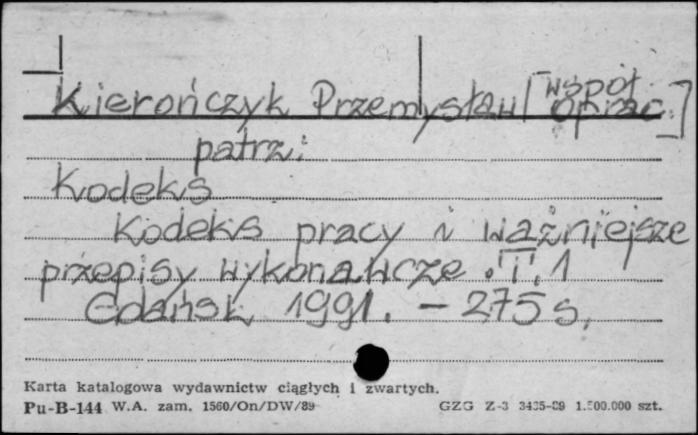 Kierończyk Przemysław [współ
oprac.]
patrz:
Kodeks
Kodeks pracy i ważniejsze
przepisy wykonawcze. T. 1
Gdańsk 1991. – 275 s.
Karta katalogowa wydawnictw ciągłych i zwartych.
Pu-B-144 W.A. zam. 1560/On/DW/89 GZG Z-3 3435-89 1.500.000 szt.